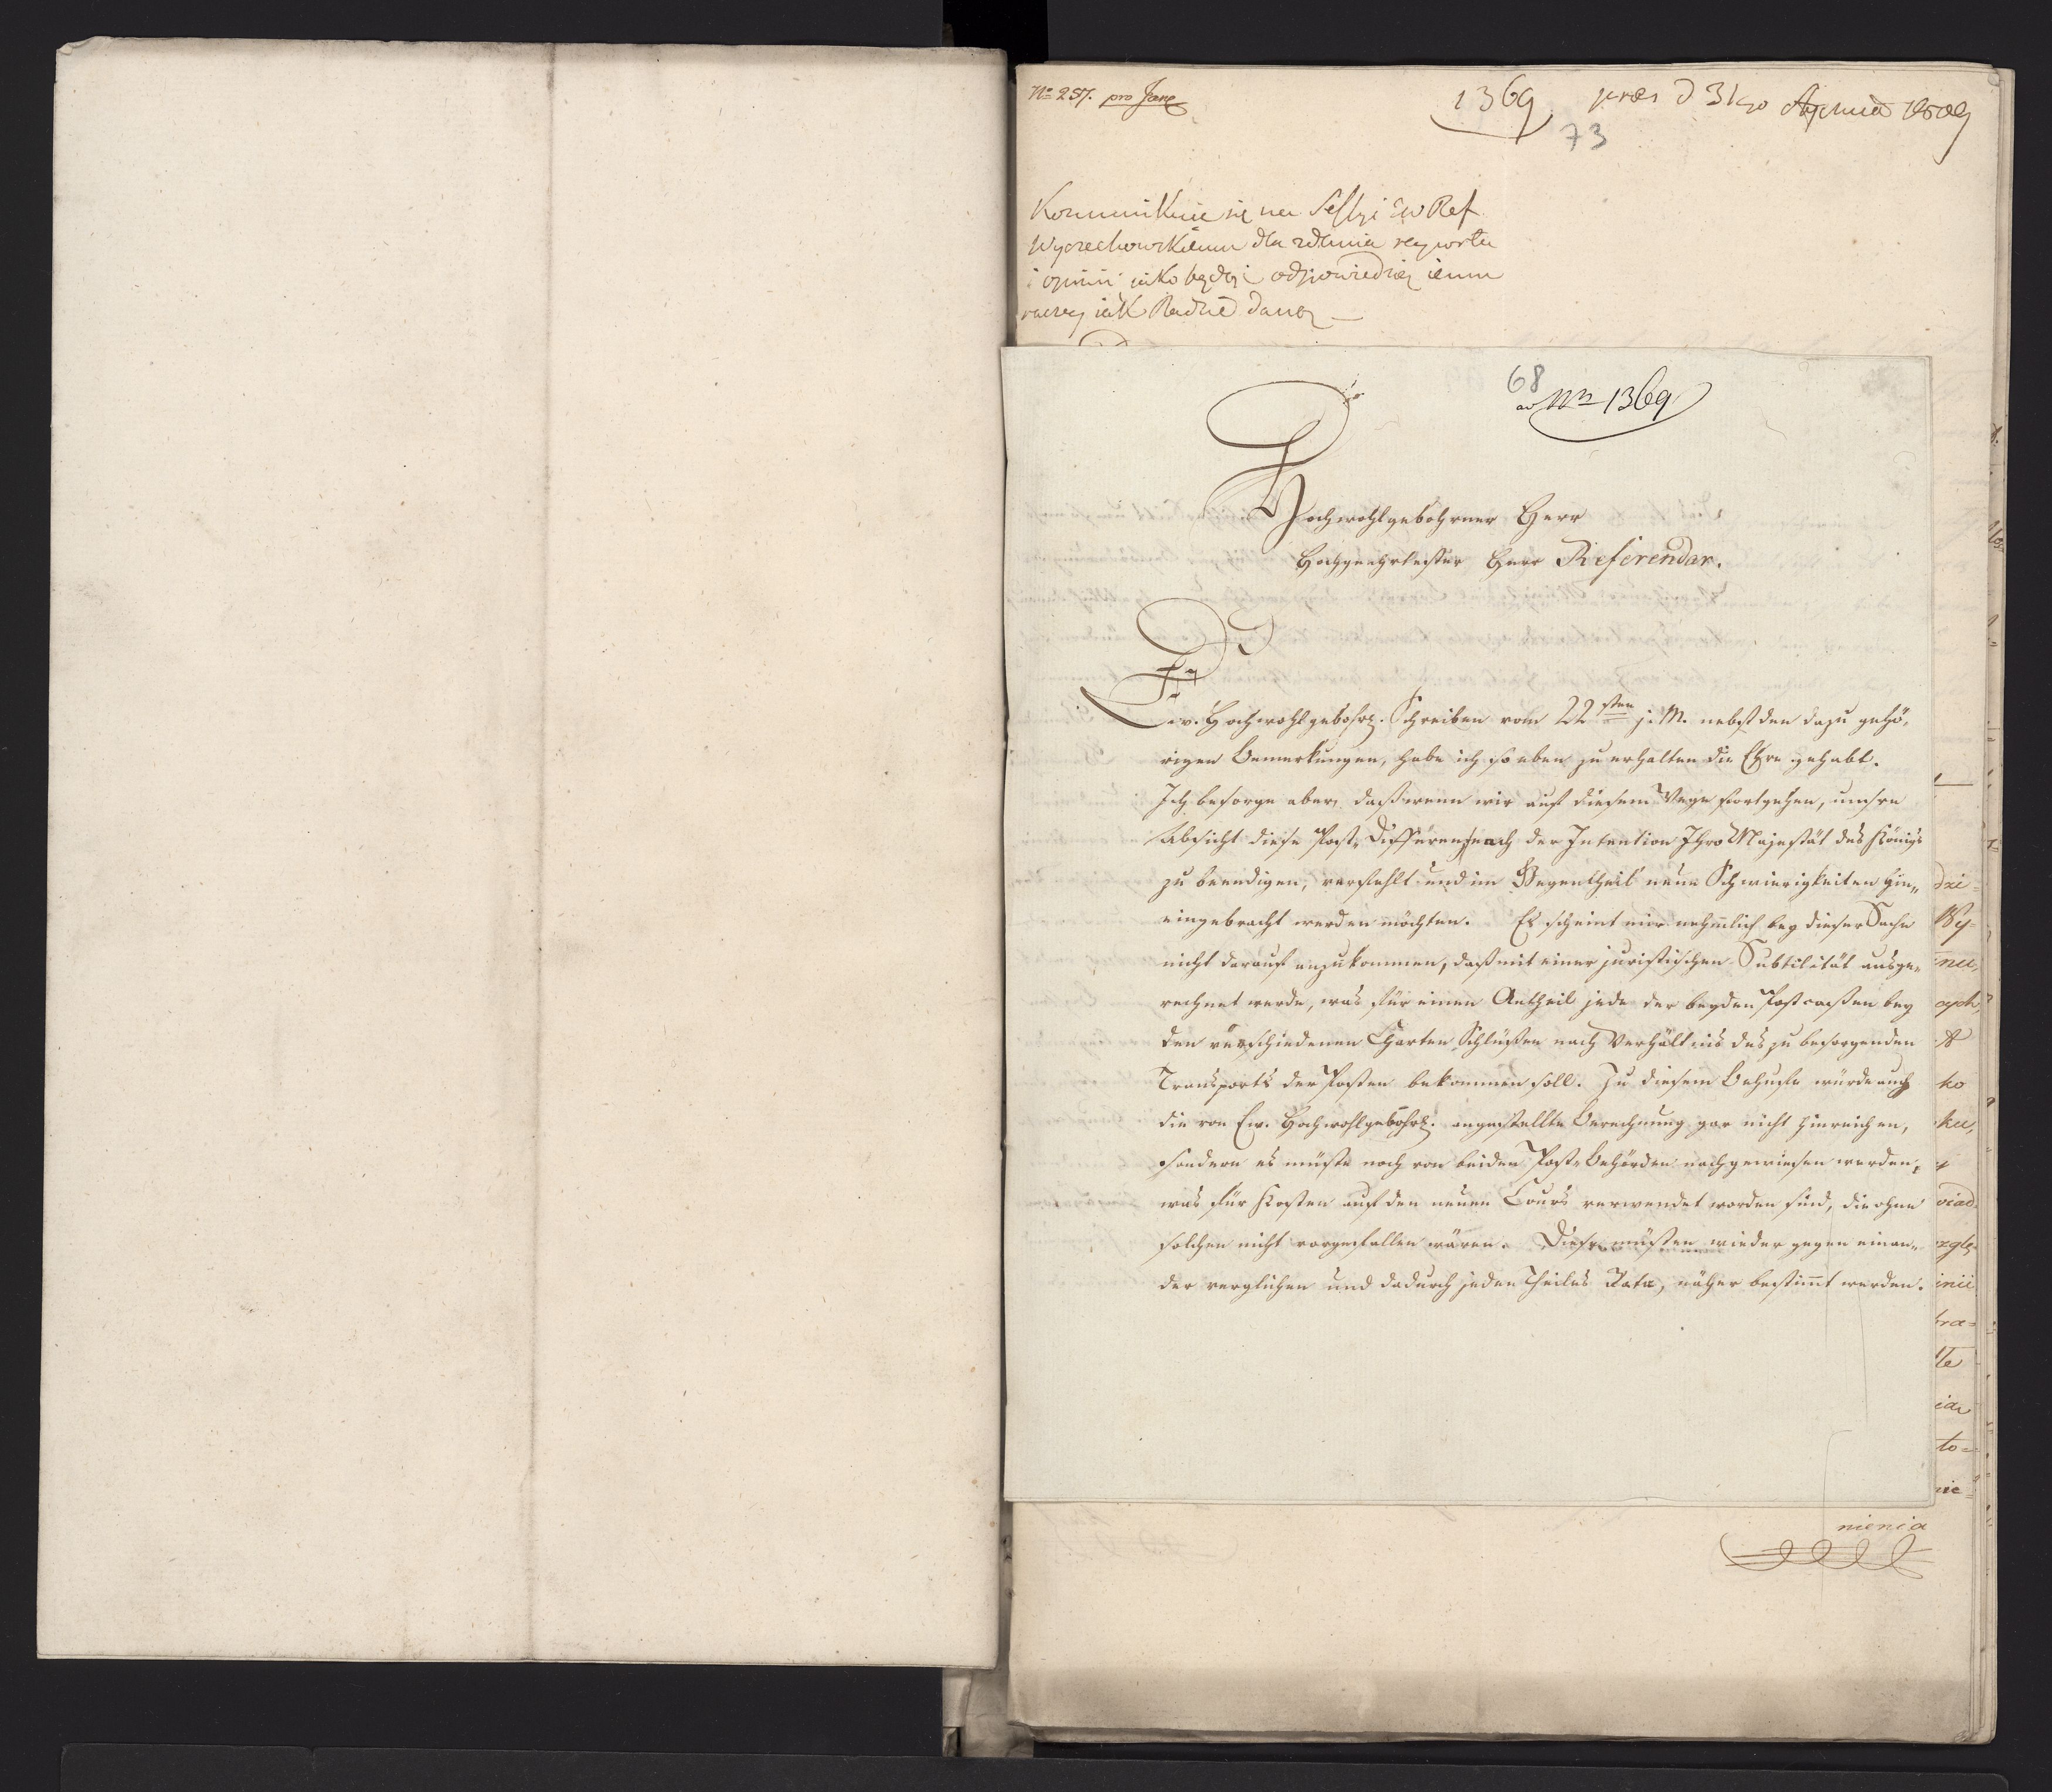 No 257. pro Jane
1369
præs d 31go Stycznia 1809
73
Kommunikuie się na Sessyi JW Ref
Wyczechowskiemu dla zdania raportu
i opinii jako będącą odpowiedzią iemu
raczey iak Radzie daną
68
ad Nro 1369
Hochwohlgebohrner Herr
Hochgeehrtester Herr Referendar.
Ew. Hochwohlgebohrn. Schreiben vom 22sten j. M. nebst den dazu gehö-
rigen Bemerkungen, habe ich so eben zu erhalten die Ehre gehabt.
Ich besorge aber, daß wenn wir auf diesem Wege fortgehen, unsre
Absicht diese Post-Differenz nach der Intention Ihro Majestät des Königs
zu beendigen, verfehlt und im Gegentheil neue Schwierigkeiten hin-
eingebracht werden möchten. Es scheint mir nehmlich bey dieser Sache
nicht darauf anzukommen, daß mit einer juristischen Subtilität ausge-
rechnet werde, was für einen Antheil jede der beyden Postcassen bey
den verschiedenen Charten Schlüßen nach Verhältnis des zu besorgenden
Transports der Posten bekommen soll. Zu diesem Behufe würde auch
die von Ew. Hochwohlgebohrn. angestellte Berechnung gar nicht hinreichen,
sondern es müßte noch von beiden Post-Behörden nachgewiesen werden,
was für Kosten auf den neuen Cours verwendet worden sind, die ohne
solchen nicht vorgefallen wären. Diese müßten wieder gegen einan-
der verglichen und dadurch jeden Theiles Rata, näher bestimmt werden.
dzi=
Wy=
ko
ku,
wiad
inii
bra=
to=
nie=
nienia